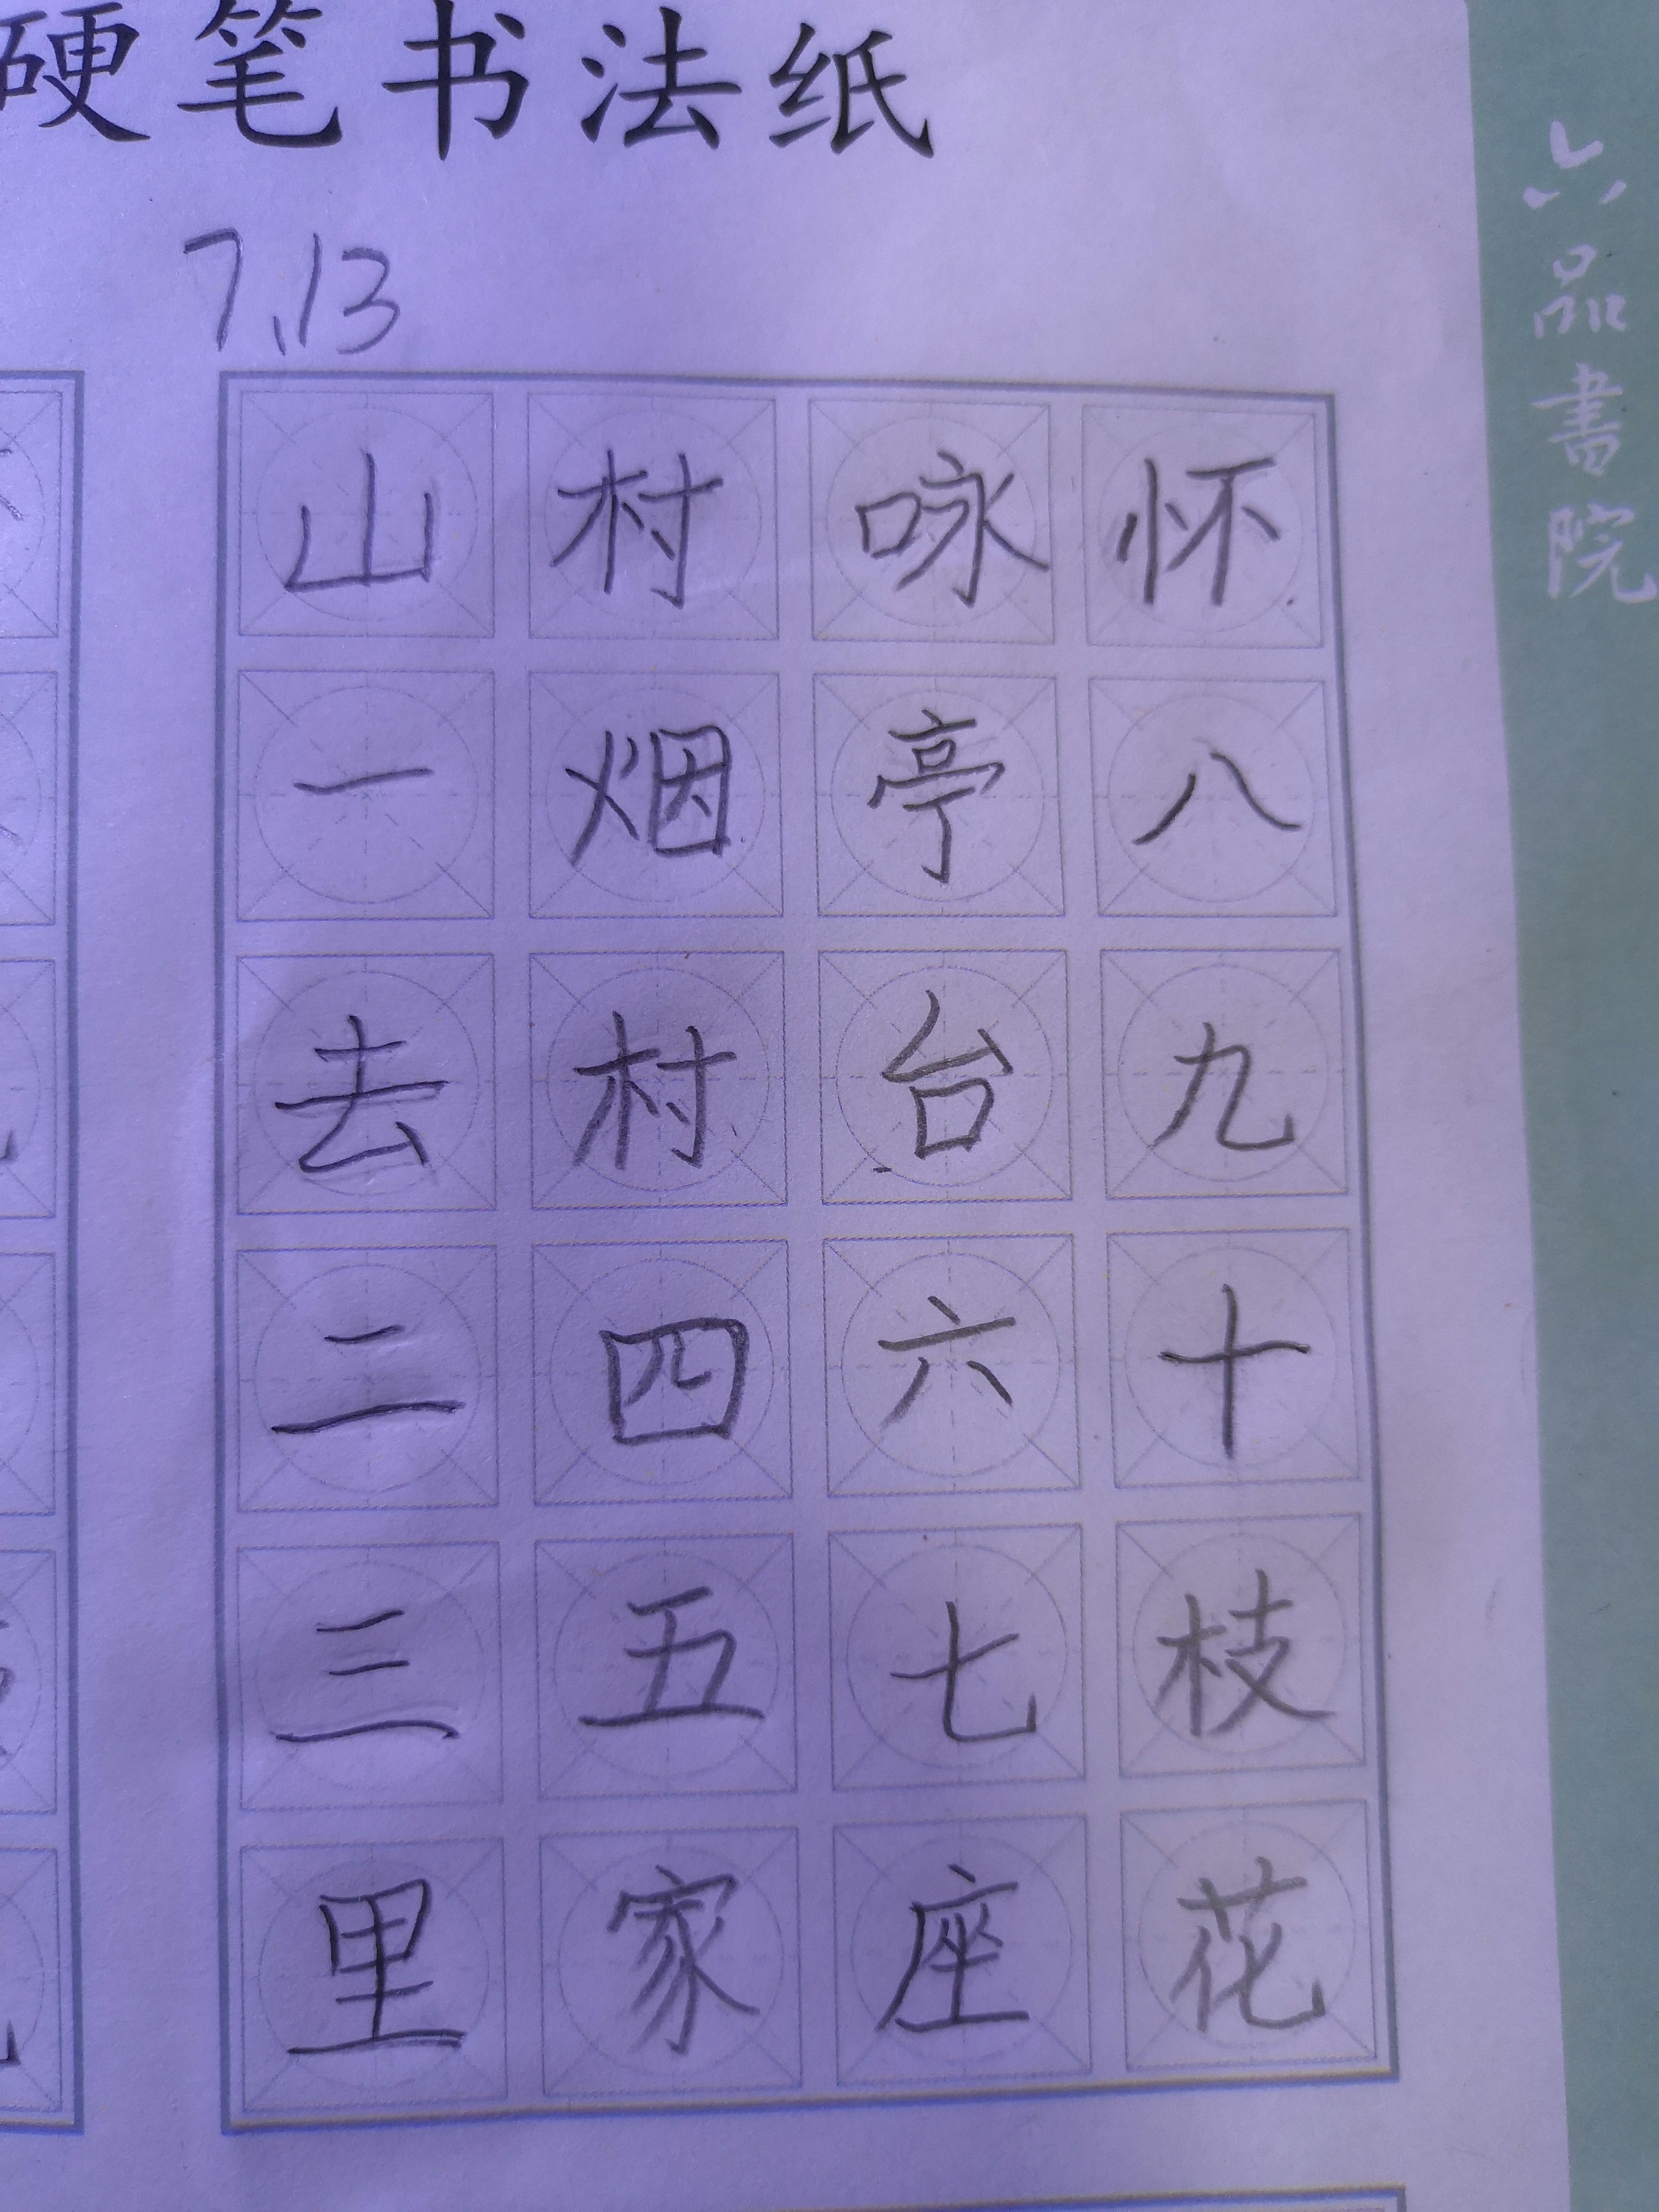 硬笔书法纸
7.13
山村咏怀
一去二三里
烟村四五家
亭台六七座
八九十枝花
六品書院